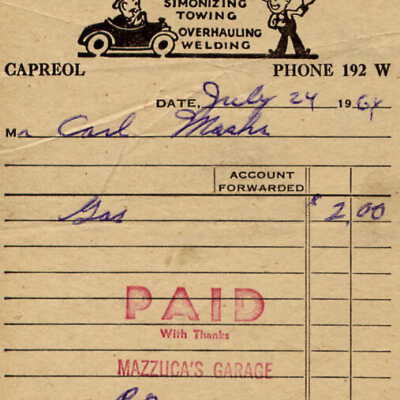 SIMONIZING
TOWING
OVERHAULING
WELDING
CAPREOL PHONE 192 W
DATE, July 24 1964
Mr Carl
ACCOUNT
FORWARDED
Gas $2.00
PAID
With Thanks
MAZZUCA'S GARAGE